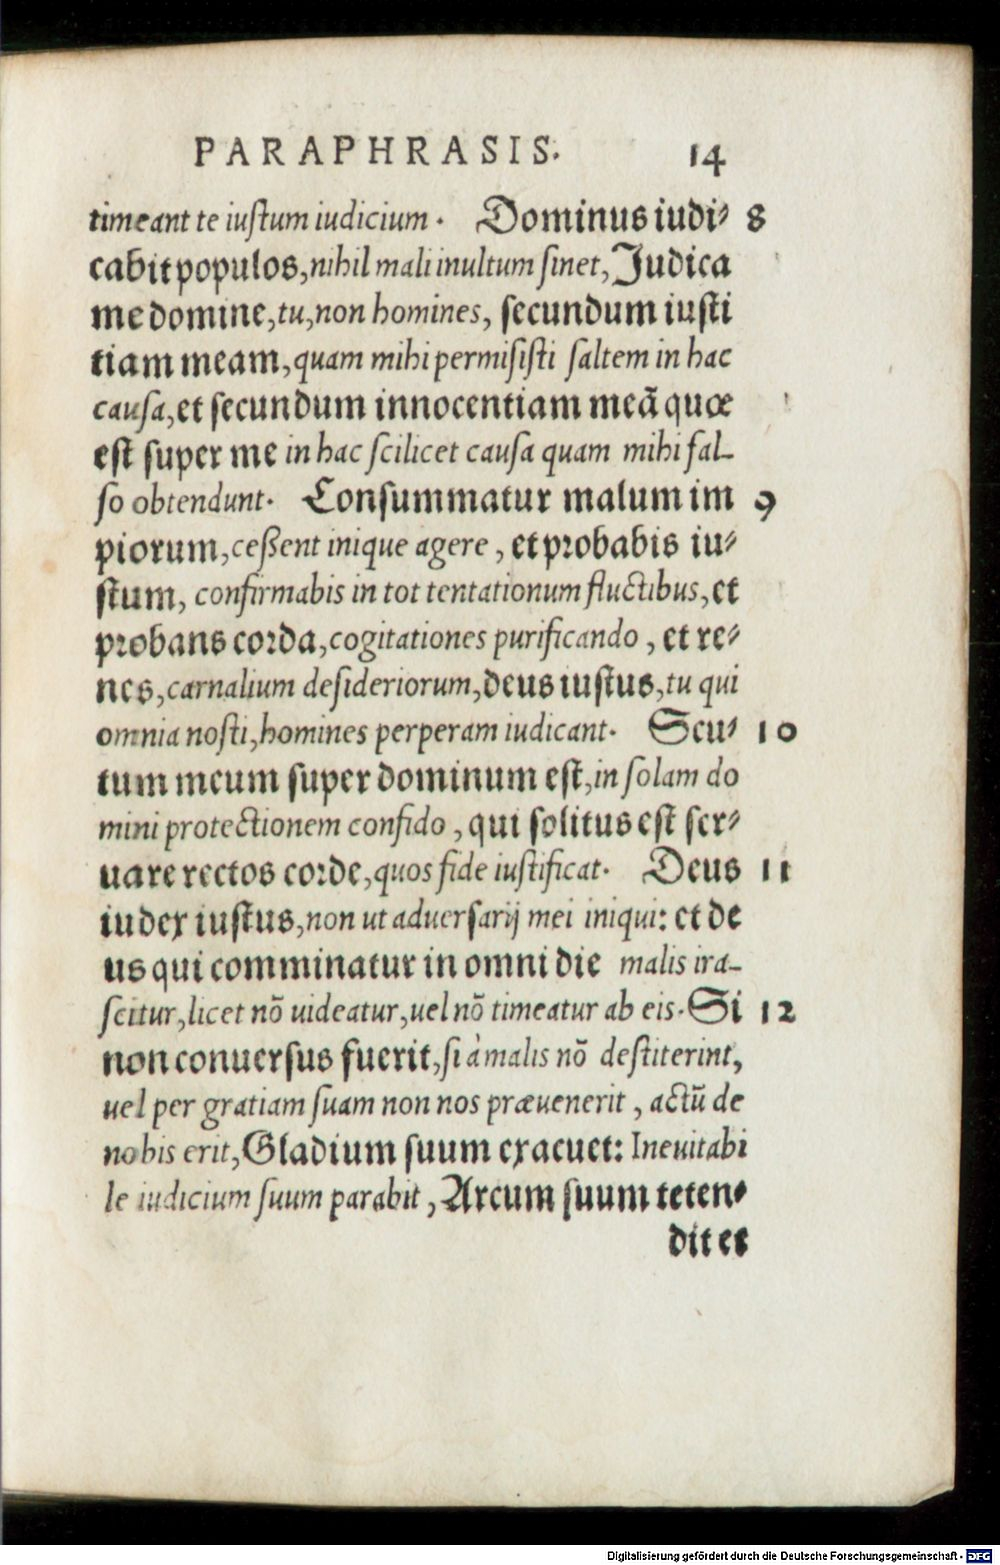 PARAPHRASIS. 14
timeant te iustum iudicium. Dominus iudi- 8
cabit populos, nihil mali inultum sinet, Judica
me domine, tu, non homines, secundum iusti
tiam meam, quam mihi permisisti saltem in hac
causa, et secundum innocentiam meã quæ
est super me in hac scilicet causa quam mihi fal-
so obtendunt. Consummatur malum im 9
piorum, ceßent inique agere, et probabis iu-
stum, confirmabis in tot tentationum fluctibus, et
probans corda, cogitationes purificando, et re-
nes, carnalium desideriorum, deus iustus, tu qui
omnia nosti, homines perperam iudicant. Scu- 10
tum meum super dominum est, in solam do
mini protectionem confido, qui solitus est ser-
uare rectos corde, quos fide iustificat. Deus 11
iudex iustus, non ut aduersarij mei iniqui: et de
us qui comminatur in omni die malis ira-
scitur, licet nõ uideatur, uel nõ timeatur ab eis. Si 12
non conuersus fuerit, si à malis nõ destiterint,
uel per gratiam suam non nos præuenerit, actũ de
nobis erit, Gladium suum exacuet: Ineuitabi
le iudicium suum parabit, Arcum suum teten-
dit et
Digitalisierung gefördert durch die Deutsche Forschungsgemeinschaft - DFG